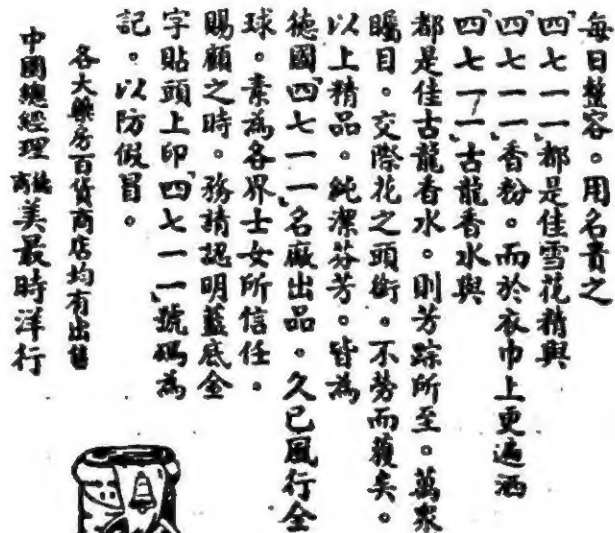 每日整容。用名貴之
「四七一一」都是佳雪花精與
「四七一一」香粉。而於衣巾上更遍洒
「四七一一」古龍香水與
都是佳古龍香水。則芳踪所至。萬衆
矚目。交際花之頭銜。不勞而獲矣。
以上精品。純潔芬芳。皆為
德國「四七一一」名廠出品。久已風行全
球。素為各界士女所信任。
賜顧之時。務請認明藍底金
字貼頭上印「四七一一」號碼為
記。以防假冒。
各大藥房百貨商店均有出售
中國總經理 德商 美最時洋行